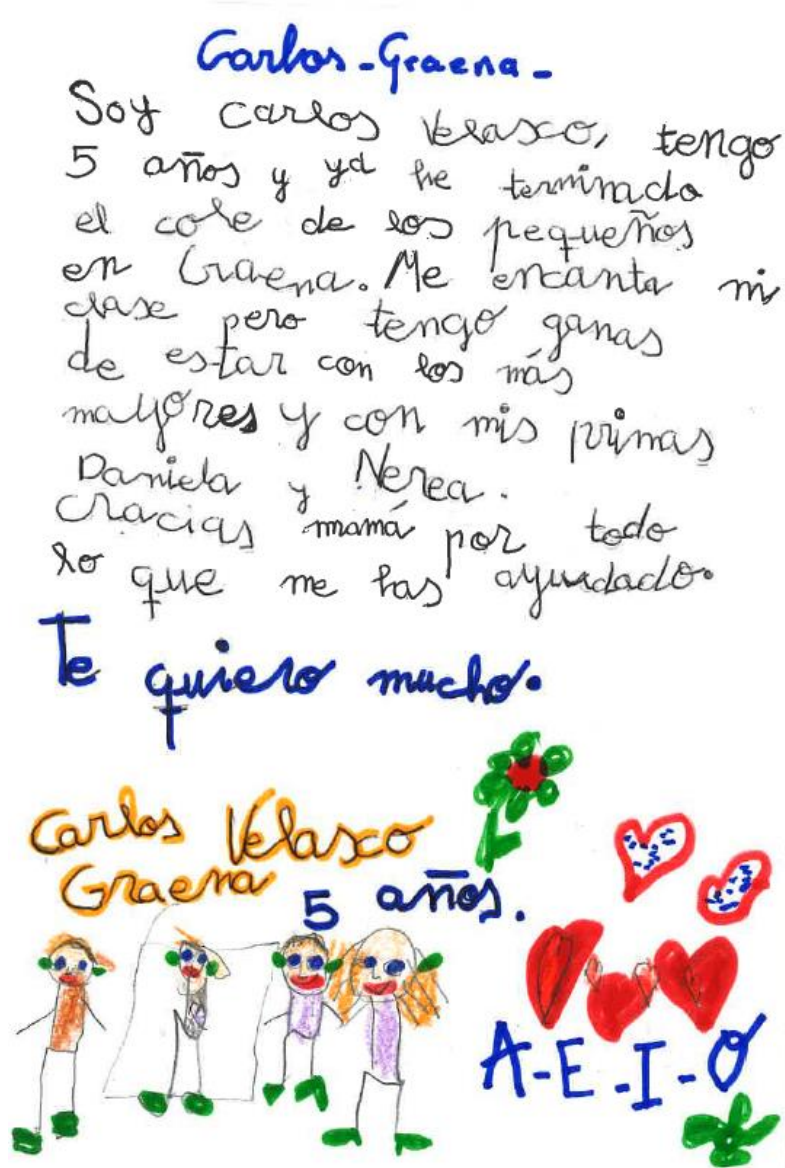 Carlos-Graena-
Soy Carlos Velasco, tengo
5 años y ya he terminado
el cole de los pequeños
en Graena. Me encanta mi
clase pero tengo ganas
de estar con los más
mayores y con mis primas
Daniela y Nerea.
Gracias mamá por todo
lo que me has ayudado.
Te quiero mucho.
Carlos Velasco
Graena 5 años.
A-E-I-O